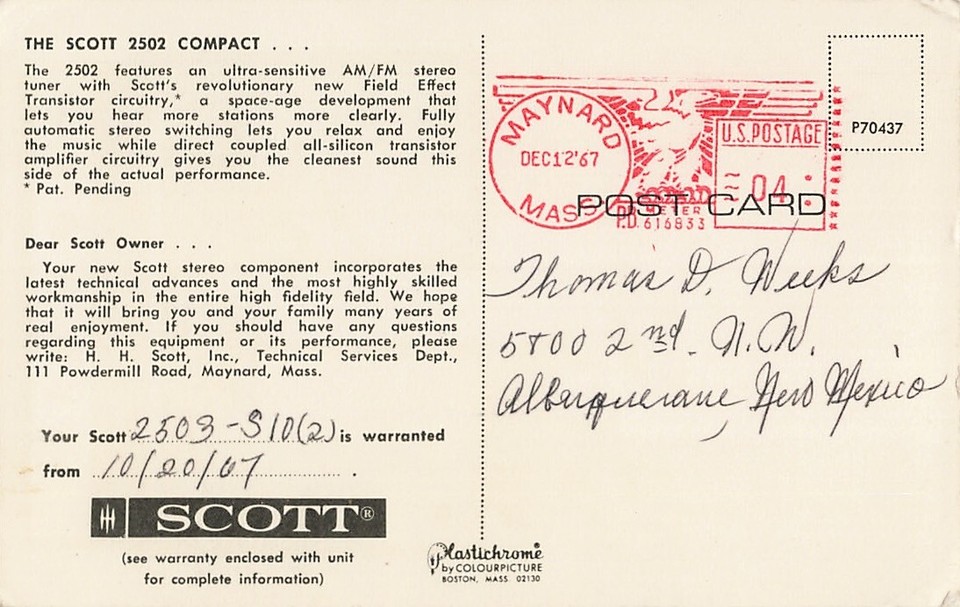 THE SCOTT 2502 COMPACT . . .
The 2502 features an ultra-sensitive AM/FM stereo
tuner with Scott's revolutionary new Field Effect
Transistor circuitry,* a space-age development that
lets you hear more stations more clearly. Fully
automatic stereo switching lets you relax and enjoy
the music while direct coupled all-silicon transistor
amplifier circuitry gives you the cleanest sound this
side of the actual performance.
* Pat. Pending
Dear Scott Owner . . .
Your new Scott stereo component incorporates the
latest technical advances and the most highly skilled
workmanship in the entire high fidelity field. We hope
that it will bring you and your family many years of
real enjoyment. If you should have any questions
regarding this equipment or its performance, please
write: H. H. Scott, Inc., Technical Services Dept.,
111 Powdermill Road, Maynard, Mass.
Your Scott 2503-S10(2) is warranted
from 10/20/67 .
SCOTT®
(see warranty enclosed with unit
for complete information)
Plastichrome®
by COLOURPICTURE
BOSTON, MASS 02130
MAYNARD
DEC12'67
MASS
U.S. POSTAGE
04
P.B. METER
616833
P70437
POST CARD
Thomas D. Weeks
5800 2nd. N.W.
Albuquerque, New Mexico